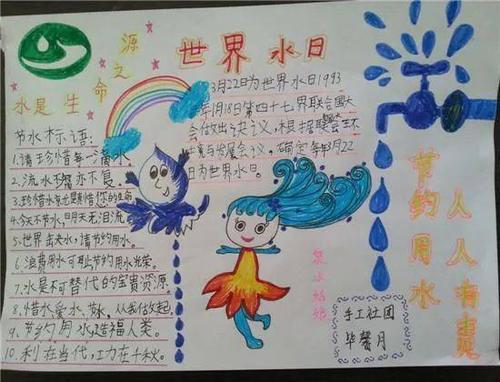 水是生命之源
世界水日
3月22日为世界水日1993
年1月18日第四十七界联合国大
会做出决议,根据联合国环
境与发展会议,确定每年3月22
日为世界水日。
节水标语:
1.请珍惜每一滴水
2.流水不腐亦不复。
3.珍惜水等
4.今天不节水,明天无泪流
5.世界缺水,请节约用水。
6.浪费用水可耻,节约用水光荣。
7.水是不可替代的宝贵资源.
8.惜水、爱水、节水,从我做起
9.节约用水,造福人类。
10.利在当代,功在千秋。
节约用水
人人有责
泉水姑娘
手工社团
毕馨月